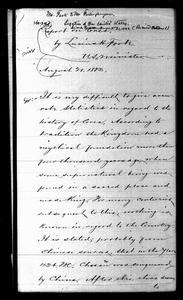 Mr. Foote to Mr. Frelinghuysen
Legation of the United States
Report on Corea
by Lucius H. Foote
U.S. Minister
August 21, 188
It is very difficult to give accu-
rate Statistics in regard to the
history of Corea. According to
tradition the Kingdom had a
mythical foundation more than
four thousand years ago, when
some supernatural being was
found in a sacred place and
made King. For many centuries
subsequent to this, nothing is
known in regard to the Country.
It is stated, probably from
Chinese sources, that in the Year
1122 B.C. Corea was
by China. After